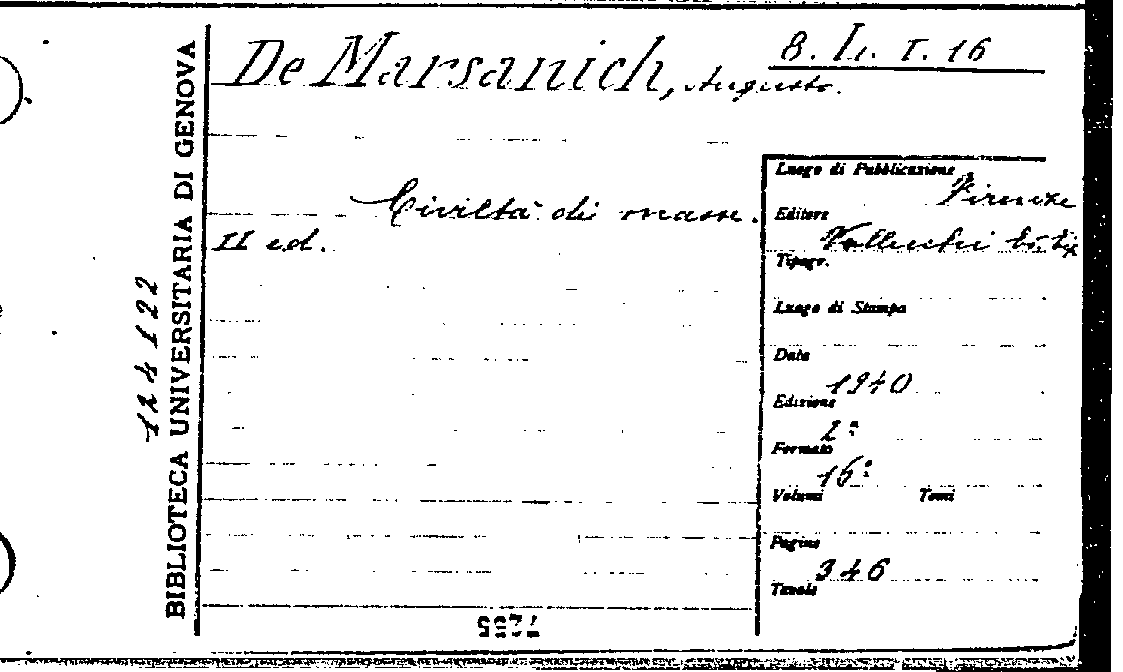 De Marsanich, Augusto.
8. L. I. 16
Civiltà di masse.
II ed.
Luogo di Pubblicazione Firenze
Editore Vallecchi
Tipogr.
Luogo di Stampa
Data 1940
Edizione 2ª
Formato 16º
Volumi Tomi
Pagine 346
Tavole
BIBLIOTECA UNIVERSITARIA DI GENOVA
124122